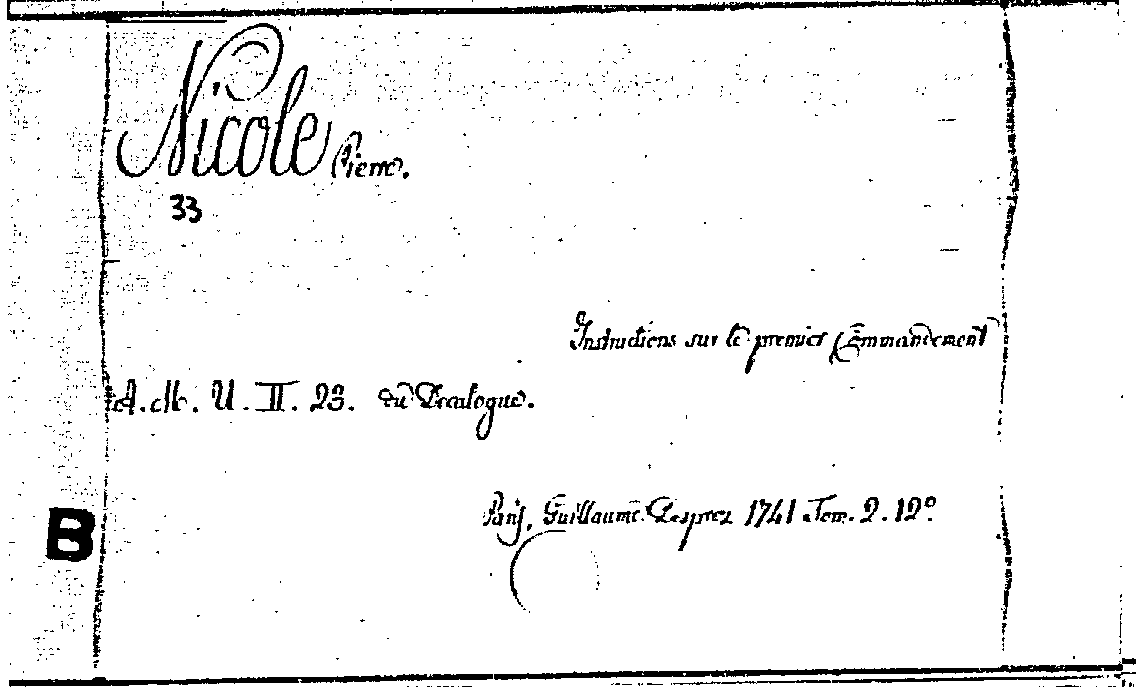 Nicole Pierre.
33
Instructions sur le premier Commandement
A. M. U. II. 23. du Decalogue.
B
Paris, Guillaume Desprez 1741 Tom. 2. 12º